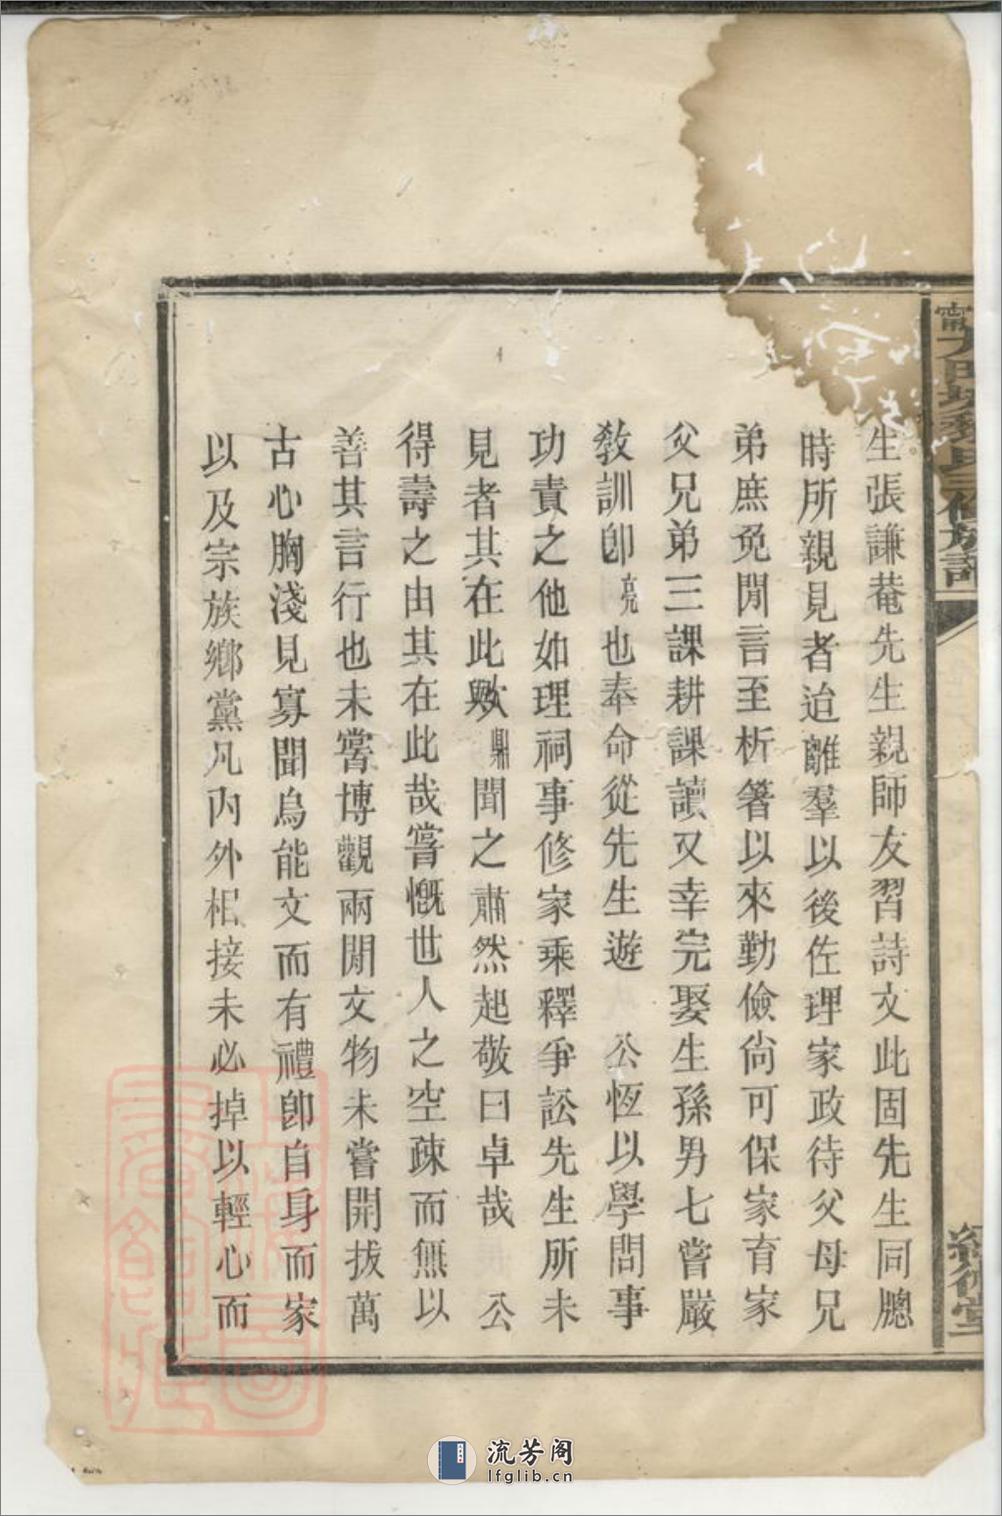 生張謙菴先生親師友習詩文此固先生同牕
時所親見者迨離羣以後佐理家政待父母兄
弟庶免閒言至析箸以來勤儉尚可保家育家
父兄弟三課耕課讀又幸完娶生孫男七嘗嚴
敎訓卽亮也奉命從先生遊 公恆以學問事
功責之他如理祠事修家乘釋爭訟先生所未
見者其在此歟鼎聞之肅然起敬曰卓哉 公
得壽之由其在此哉嘗慨世人之空疎而無以
善其言行也未嘗博觀兩閒文物未嘗開拔萬
古心胸淺見寡聞烏能文而有禮卽自身而家
以及宗族鄉黨凡內外相接未必掉以輕心而
流芳阁
lfglib.cn